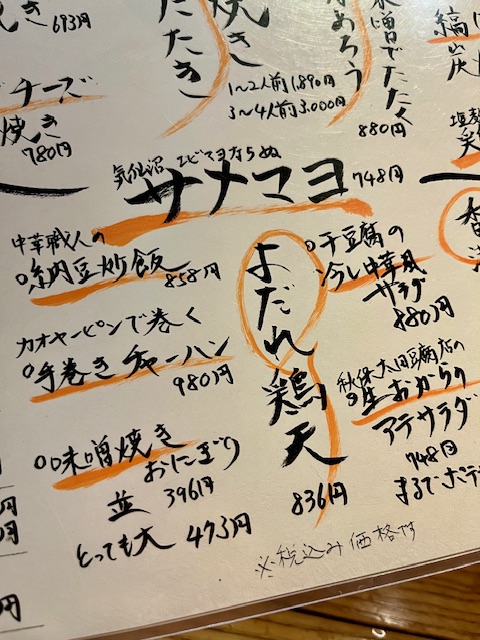 き 693円
たたき
焼き
1〜2人前 1,890円
3〜4人前 3.000円
なめろう
味噌でたたく
880円
縞
炭
チーズ
焼き
780円
気仙沼 エビマヨならぬ
サメマヨ 748円
中華職人の
納豆炒飯 858円
カオヤーピンで巻く
手巻きチャーハン
980円
味噌焼き
おにぎり
並 396円
とっても大 473円
よだれ鶏天
836円
干豆腐の
冷し中華風
サラダ
880円
秋保太田豆腐店の
生おからの
アテサラダ
748円
まるでポテ
※税込み価格です
円
円